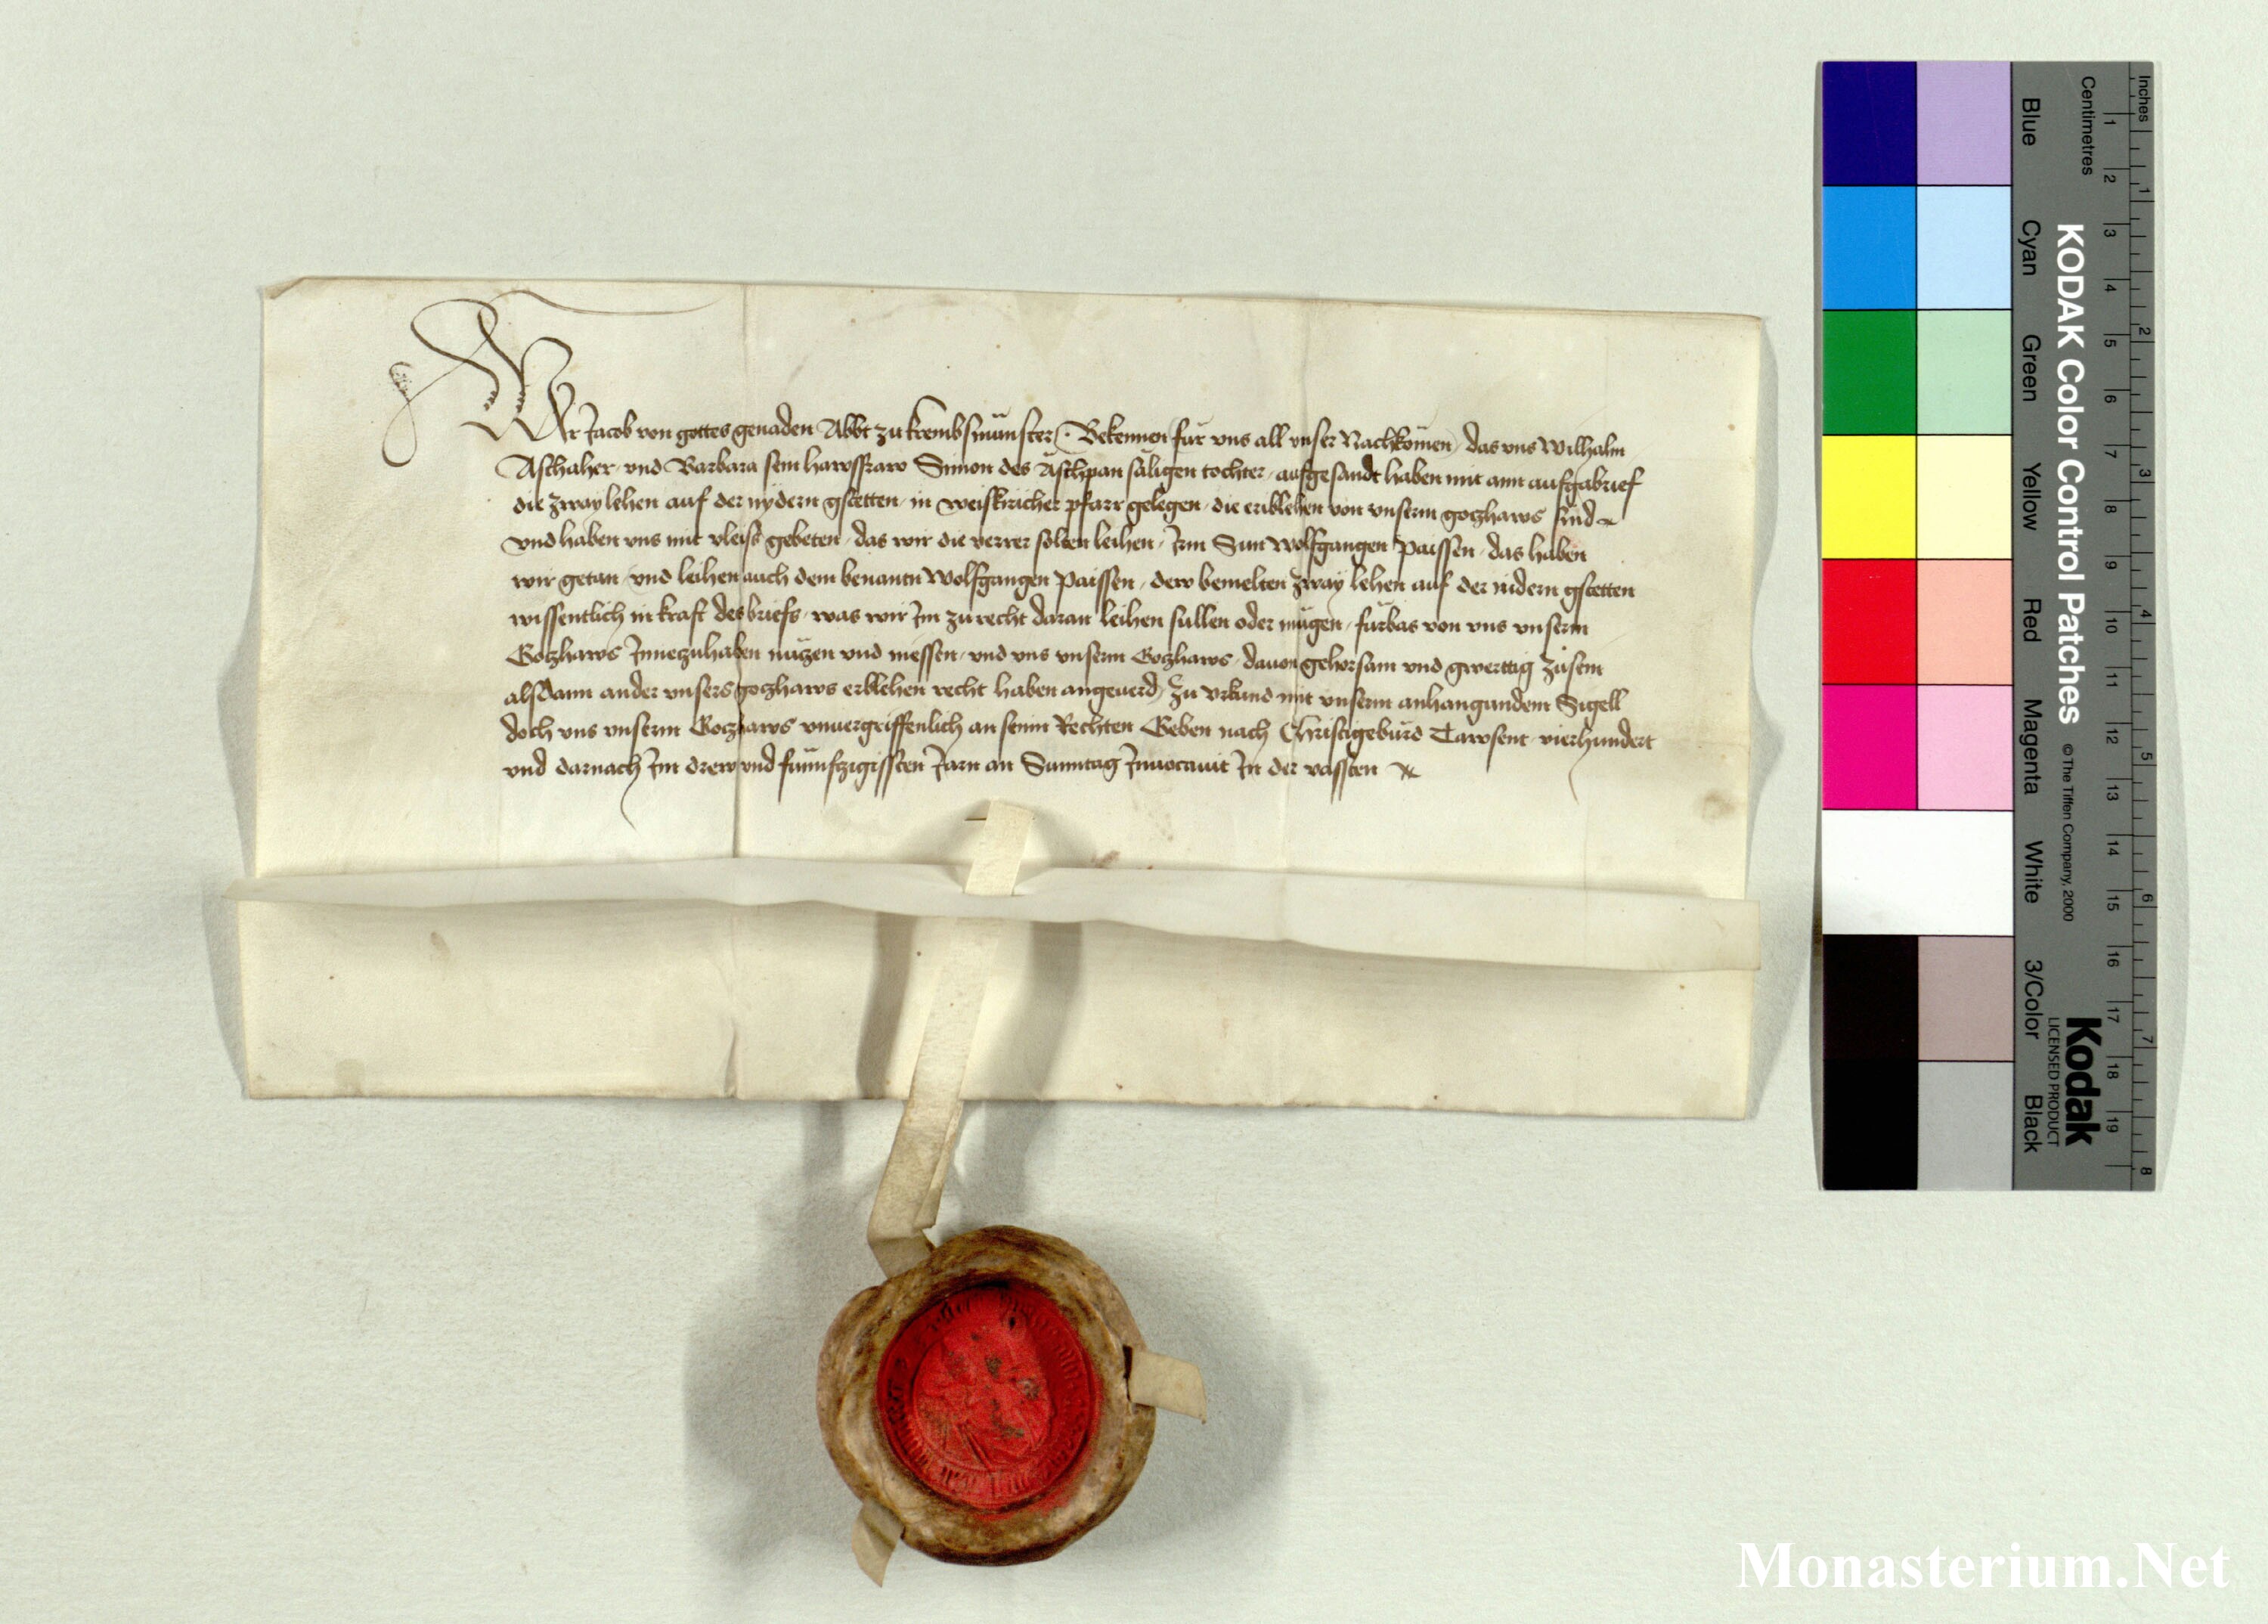 Wir Jacob von gottes genaden Abbt zu krembsmünster Bekennen für vns all vnser Nachkomen das vns Wilhalm
Aschaher vnd Barbara sein hawsfraw Simon des Aschpan säligen tochter aufgesandt haben mit aim aufgabrief
die zway lehen auf der nydern gstetten in weiskiricher pfarr gelegen die erblehen von vnserm gozhaws sind
vnd haben vns mit vleiss gebeten das wir die verrer solten leihen Irm Sun Wolfgangen Paissen das haben
wir getan vnd leihen auch dem benantn Wolfgangen Paissen dew bemelten zway lehen auf der nidern gstetten
wissentlich in kraft des briefs was wir Im zu recht daran leihen sullen oder mügen fürbas von vns vnserm
Gozhaws Innezuhaben nüzen vnd niessen vnd vns vnserm Gozhaws dauon gehorsam vnd gwerttig zusein
alsdann ander vnsers gozhaws erblehen recht haben angeuerd Zu vrkund mit vnserm anhangundem Sigell
doch vns vnserm Gozhaws vnuergriffenlich an seinn Rechten Geben nach Christi geburd Tawsent vierhundert
vnd darnach Im drew vnd fünnfzigissten Jarn an Sunntag Inuocauit In der vassten
Inches
Centimetres
1 2 3 4 5 6 7 8 9 10 11 12 13 14 15 16 17 18 19
1 2 3 4 5 6 7 8
KODAK Color Control Patches © The Tiffen Company, 2000
Kodak
LICENSED PRODUCT
Blue Cyan Green Yellow Red Magenta White 3/Color Black
Monasterium.Net